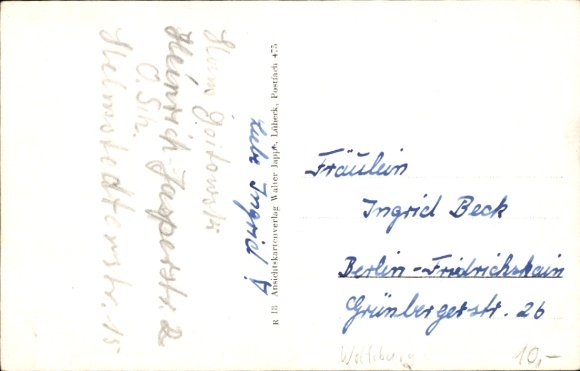 Heinrich-Jasperstr. 2
Helmstedterstr. 15
R 18 Ansichtskartenverlag Walter Jappe, Lübeck, Postfach 475
Liebe Ingrid!
Fräulein
Ingrid Beck
Berlin-Friedrichshain
Grünbergerstr. 26
Wolfsburg
10,-